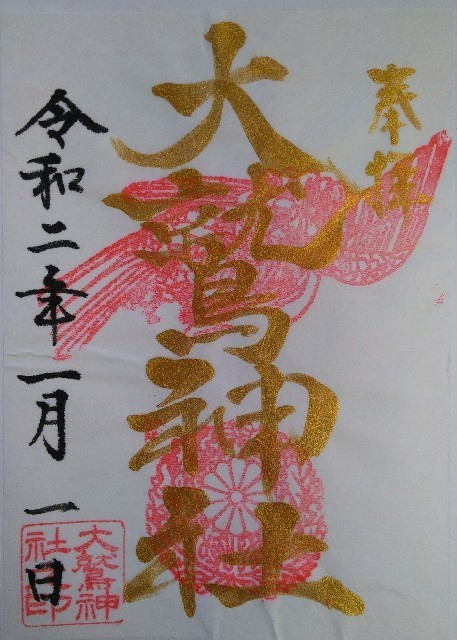 奉拝
大鷲神社
令和二年一月一日
大鷲神
社之印